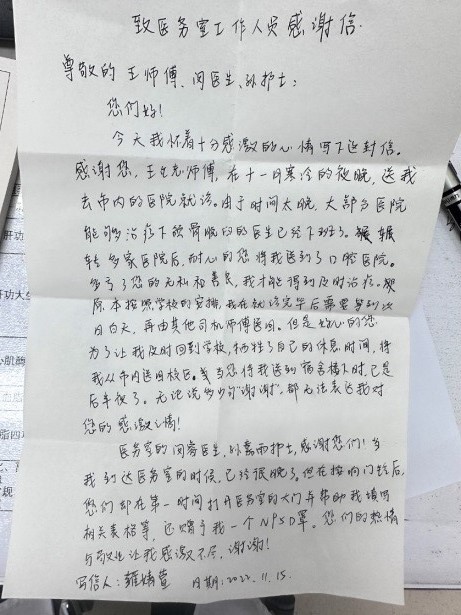 致医务室工作人员感谢信
尊敬的王师傅、闵医生、孙护士:
您们好!
今天我怀着十分感激的心情写下这封信。
感谢您,王师傅,在十一月寒冷的夜晚,送我
去市内的医院就诊。由于时间太晚,大部分医院
能够治疗下颌骨脱臼的医生已经下班了。辗
转多家医院后,耐心的您将我送到了口腔医院。
多亏了您的无私和善良,我才能得到及时治疗。
原本按照学校的安排,我在就诊完毕后需要等到次
日白天,再由其他司机师傅送回。但是好心的您
为了让我及时回到学校,牺牲了自己的休息时间,将
我从市内送回校区。当您将我送到宿舍楼下时,已是
后半夜了。无论说多少句"谢谢",都无法表达我对
您的感激之情!
医务室的闵医生,孙护士,感谢您们!当
我到达医务室的时候,已经很晚了。但在按响门铃后,
您们却在第一时间打开医务室的大门并帮助我填写
相关表格等,还赠予我一个N95口罩。您们的热情
与敬业让我感激不尽,谢谢!
写信人: 日期:2022.11.15.